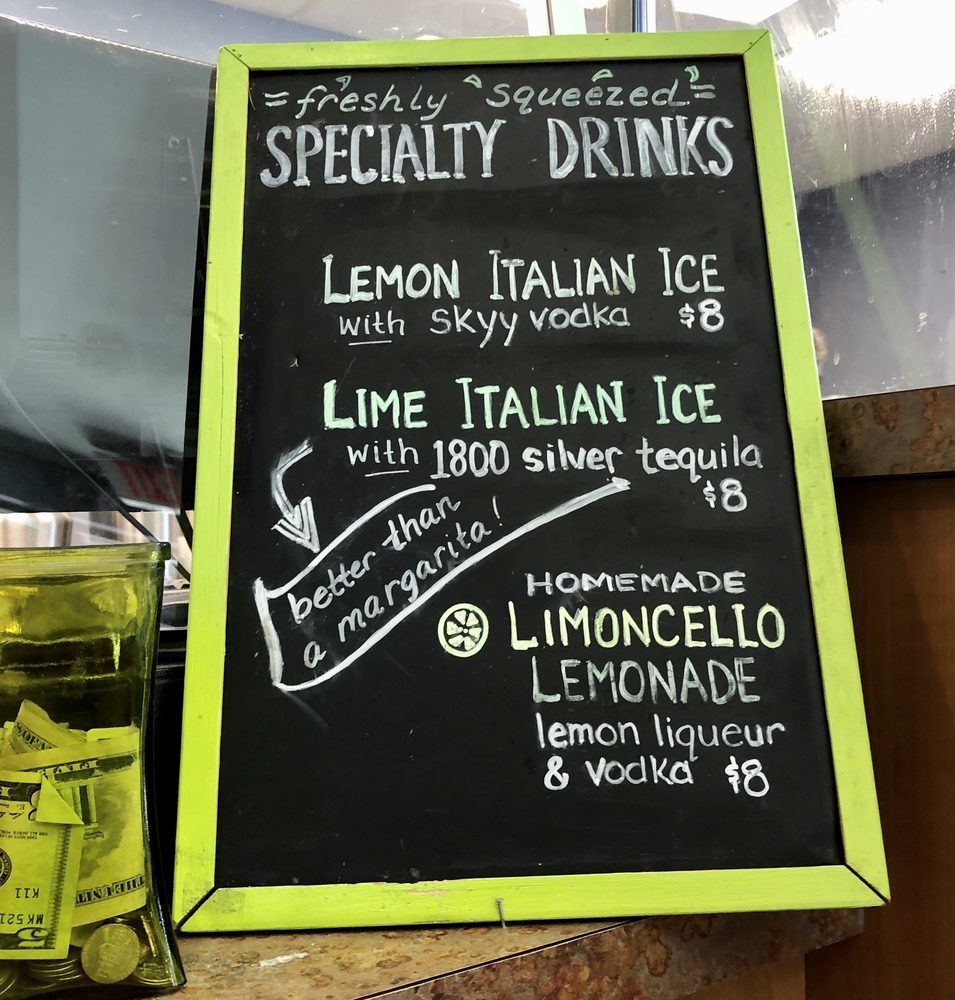 = freshly squeezed =
SPECIALTY DRINKS
LEMON ITALIAN ICE
with SKYY vodka $8
LIME ITALIAN ICE
with 1800 silver tequila
$8
better than
a margarita!
HOMEMADE
LIMONCELLO
LEMONADE
lemon liqueur
& vodka $8
THE UNIT
K11
MK 521
5